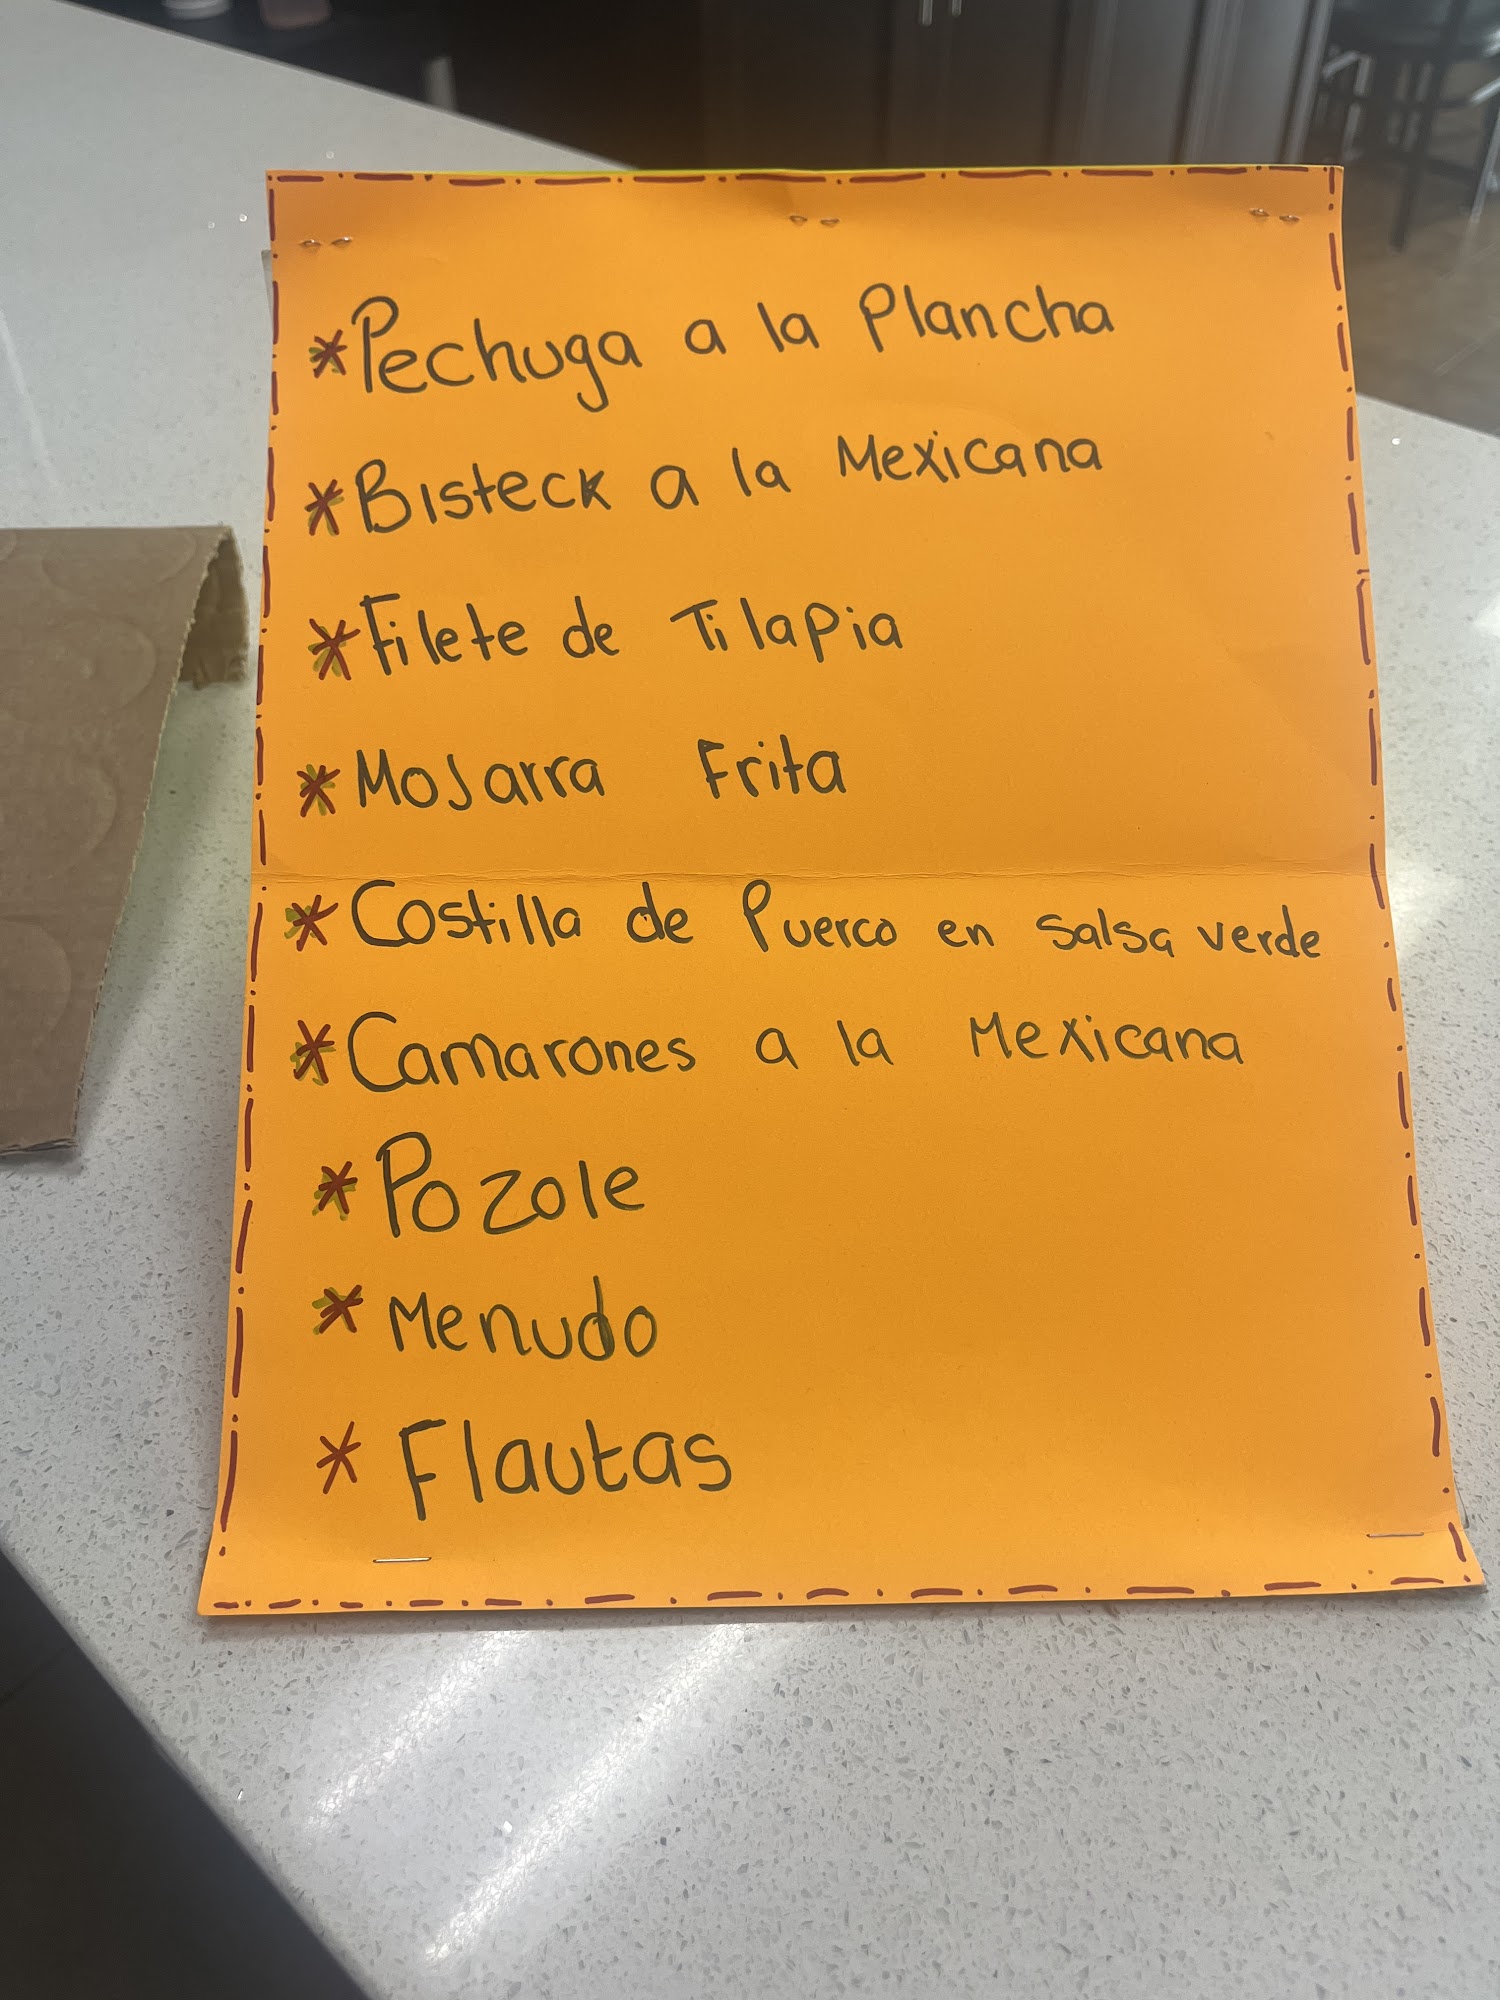 * Pechuga a la Plancha
* Bisteck a la Mexicana
* Filete de Tilapia
* Mojarra Frita
* Costilla de Puerco en Salsa verde
* Camarones a la Mexicana
* Pozole
* Menudo
* Flautas